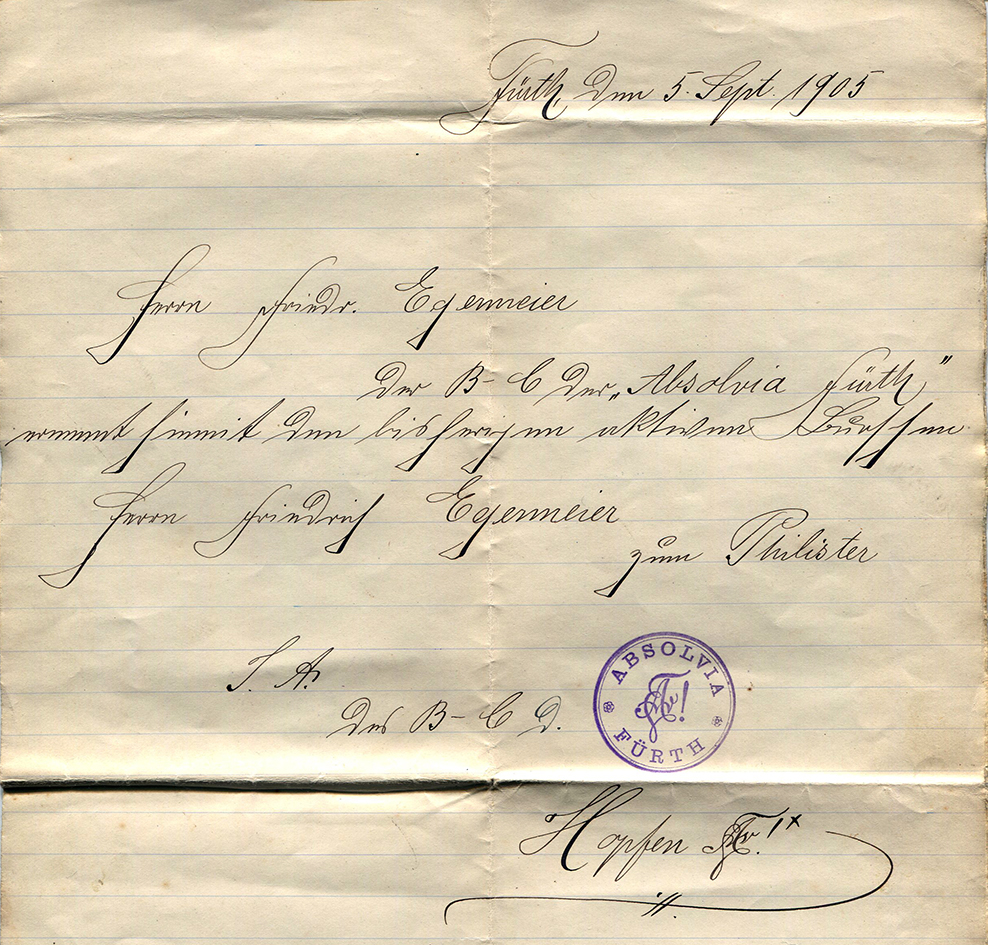 Fürth den 5. Sept. 1905
Herrn Friedr. Egermeier
Der B-C der „Absolvia Fürth"
ernennt hiemit den bisherigen aktiven Burschen
Herrn Friedrich Egermeier
zum Philister
I. A.
des B-C d.
ABSOLVIA
FÜRTH
Hopfen